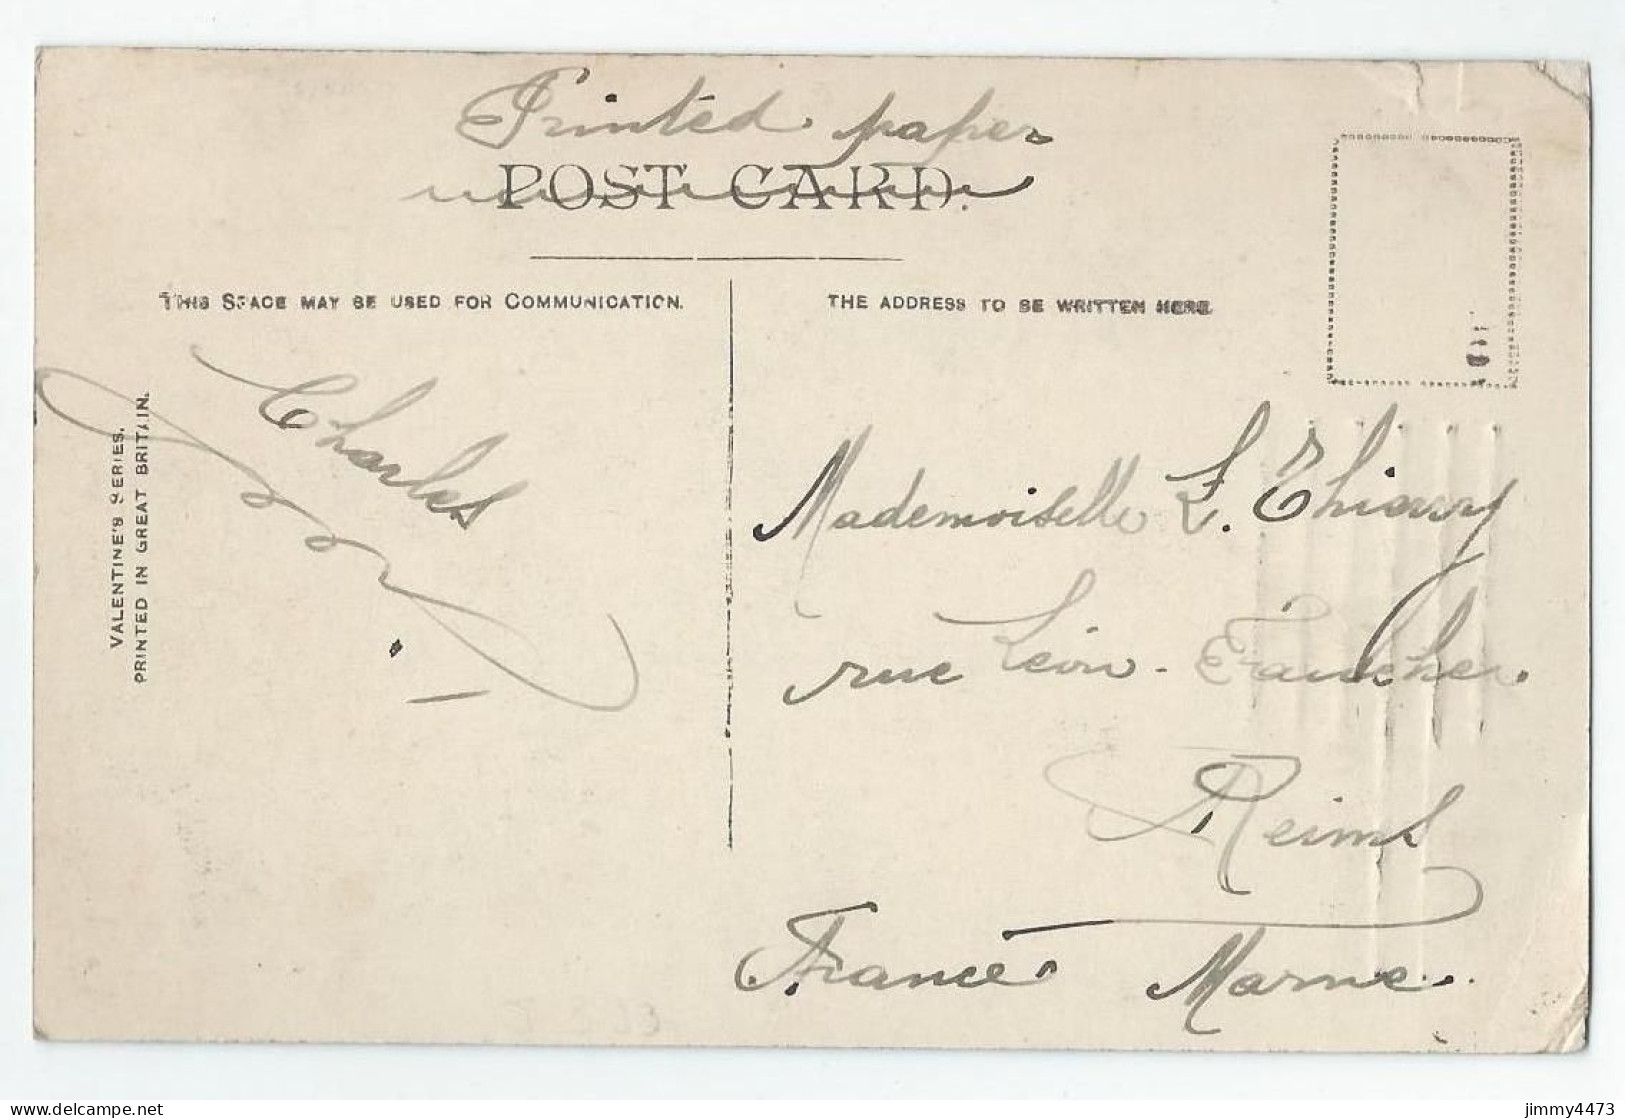 Printed paper
POST CARD.
THIS SPACE MAY BE USED FOR COMMUNICATION.
THE ADDRESS TO BE WRITTEN HERE.
VALENTINE'S SERIES.
PRINTED IN GREAT BRITAIN.
Charles
Mademoiselle L. Thiary
rue Léon-Faucher.
Reims
France Marne.
jimmy4473